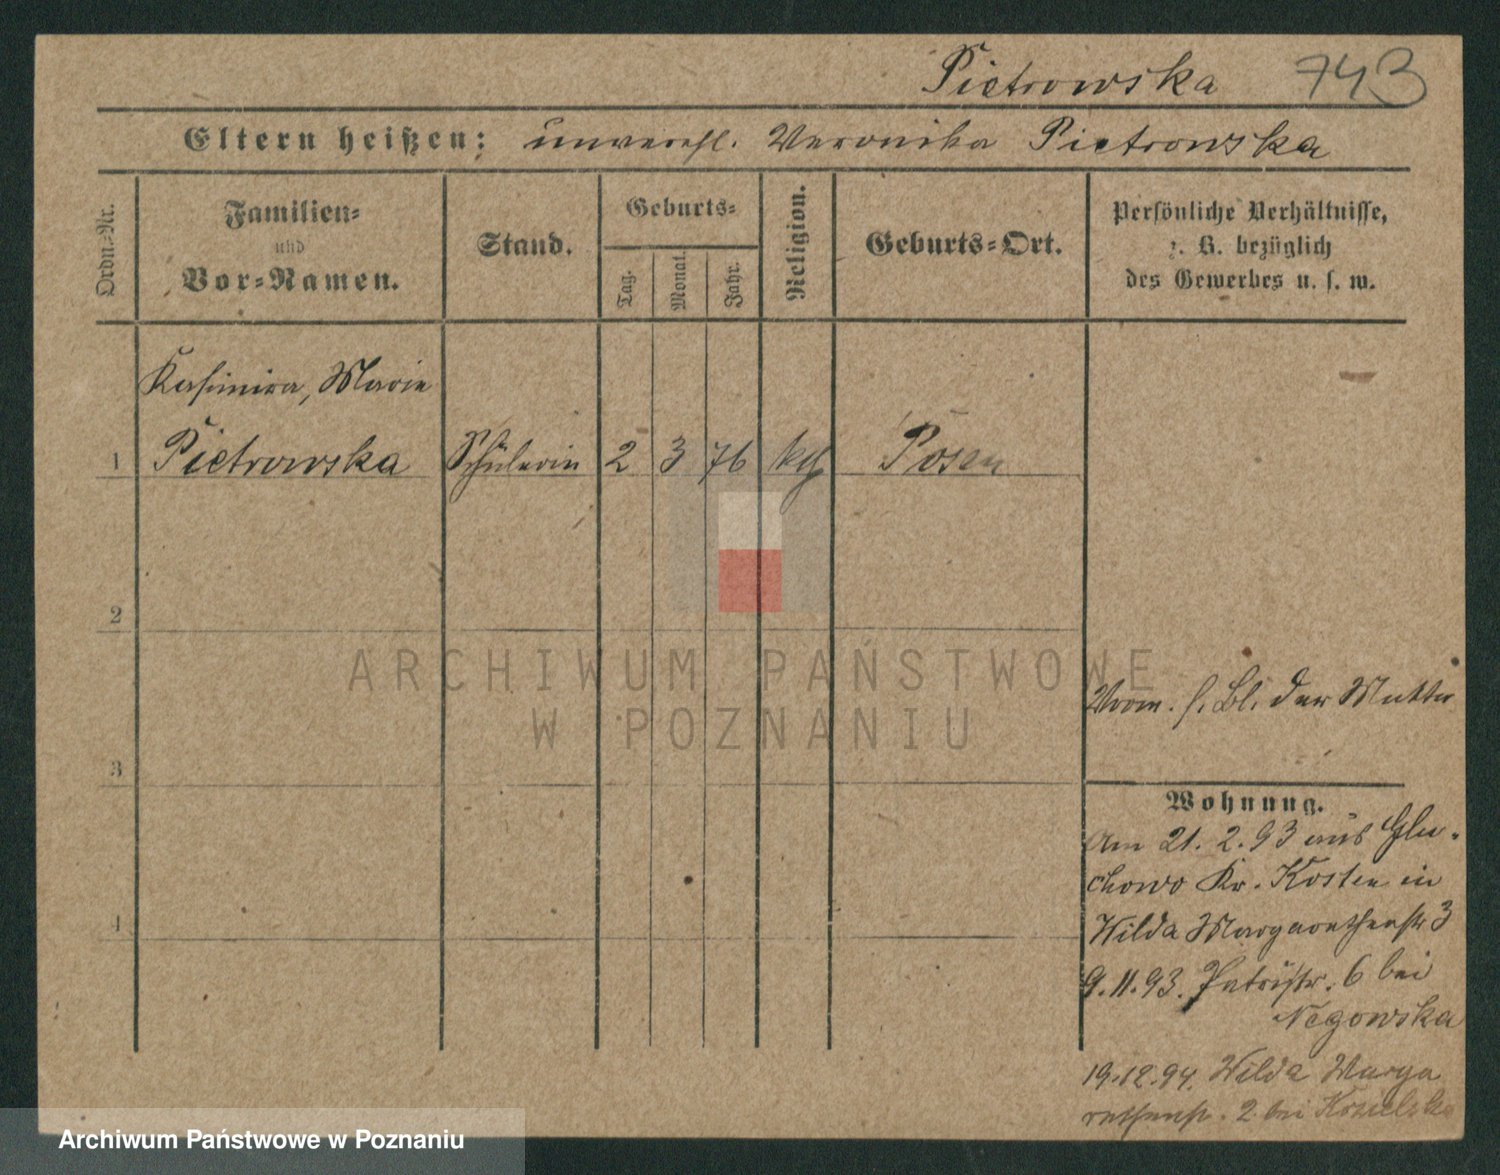 Pietrowska 743
Eltern heißen: unverehl. Veronika Pietrowska
Ordn.-Nr.
Familien-
und
Vor-Namen.
Stand.
Geburts-
Tag.
Monat.
Jahr.
Religion.
Geburts-Ort.
Persönliche Verhältnisse,
z. B. bezüglich
des Gewerbes u. s. w.
Kasimira, Marie
1 Pietrowska Schülerin 2 3 76 kth Posen
2
3
4
Vorm. s. Bl. der Mutter
Wohnung.
Am 21. 2. 93 aus Glu-
chowo Kr. Kosten in
Wilda Margarethenstr 3
9. 11. 93. Petristr. 6 bei
Negowska
19.12.94. Wilda Marga
rethenstr. 2 bei
ARCHIWUM PAŃSTWOWE
W POZNANIU
Archiwum Państwowe w Poznaniu